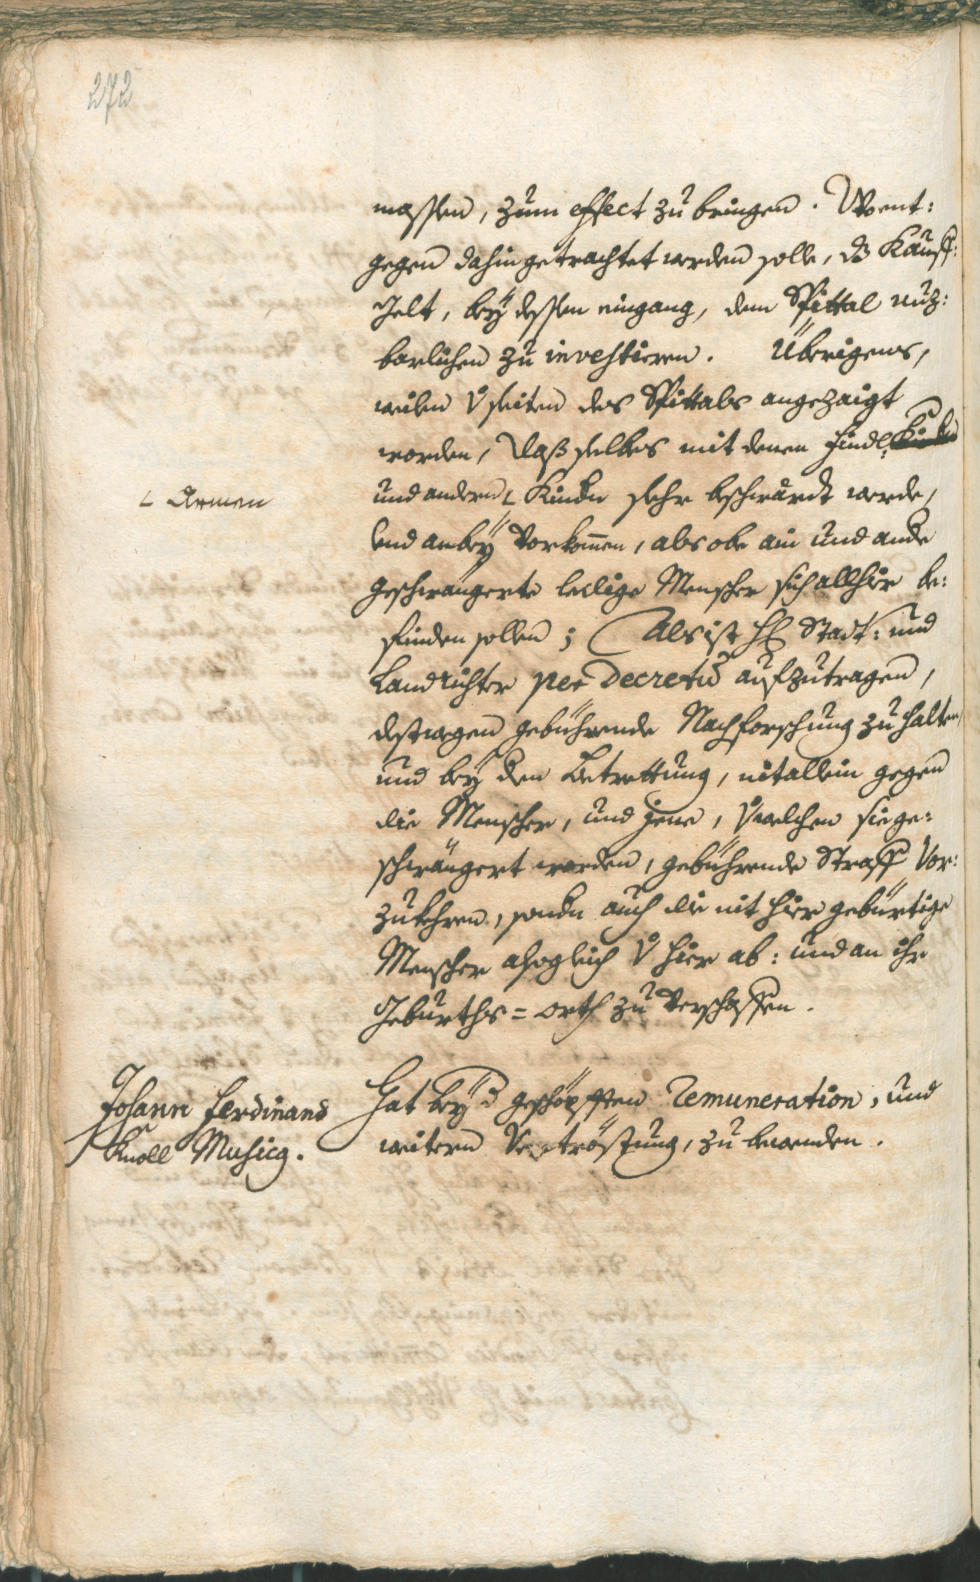 272
massen, zum effect zu bringen. Woent:
gegen dahin getrachtet werden solle, dz Kauff:
Gelt, beÿ dessen eingang, dem Spittal nuz:
barlichen zu investieren. Überigens,
weilen v seiten des Spittals angezaigt
worden, daß selbes mit denen Findl, Kinder
und andern L Kindern sehr beschwärdt werde,
L Armen
und anbeÿ Vorkommen, als obe ain und ande
geschwängerte ledige Menscher sich allhier be:
finden sollen; Als ist H Stadt: und
Landrichter per Decretum aufzutragen,
destwegen gebührende Nachforschung zu halten
und beÿ dem Betrettung, nit allein gegen
die Menscher, und jene, v welchen sie ge:
schwängert worden, gebührende Straff Vor:
zukehren, sondern auch die nit hier gebürtige
Menscher alsogleich v hier ab: und an ihr
Geburths=orth zu Verschaffen.
Johann Ferdinand
Knoll Musicq.
Hat beÿ d geschöpfften Remuneration, und
weitern Vertröstung, zu bewenden.